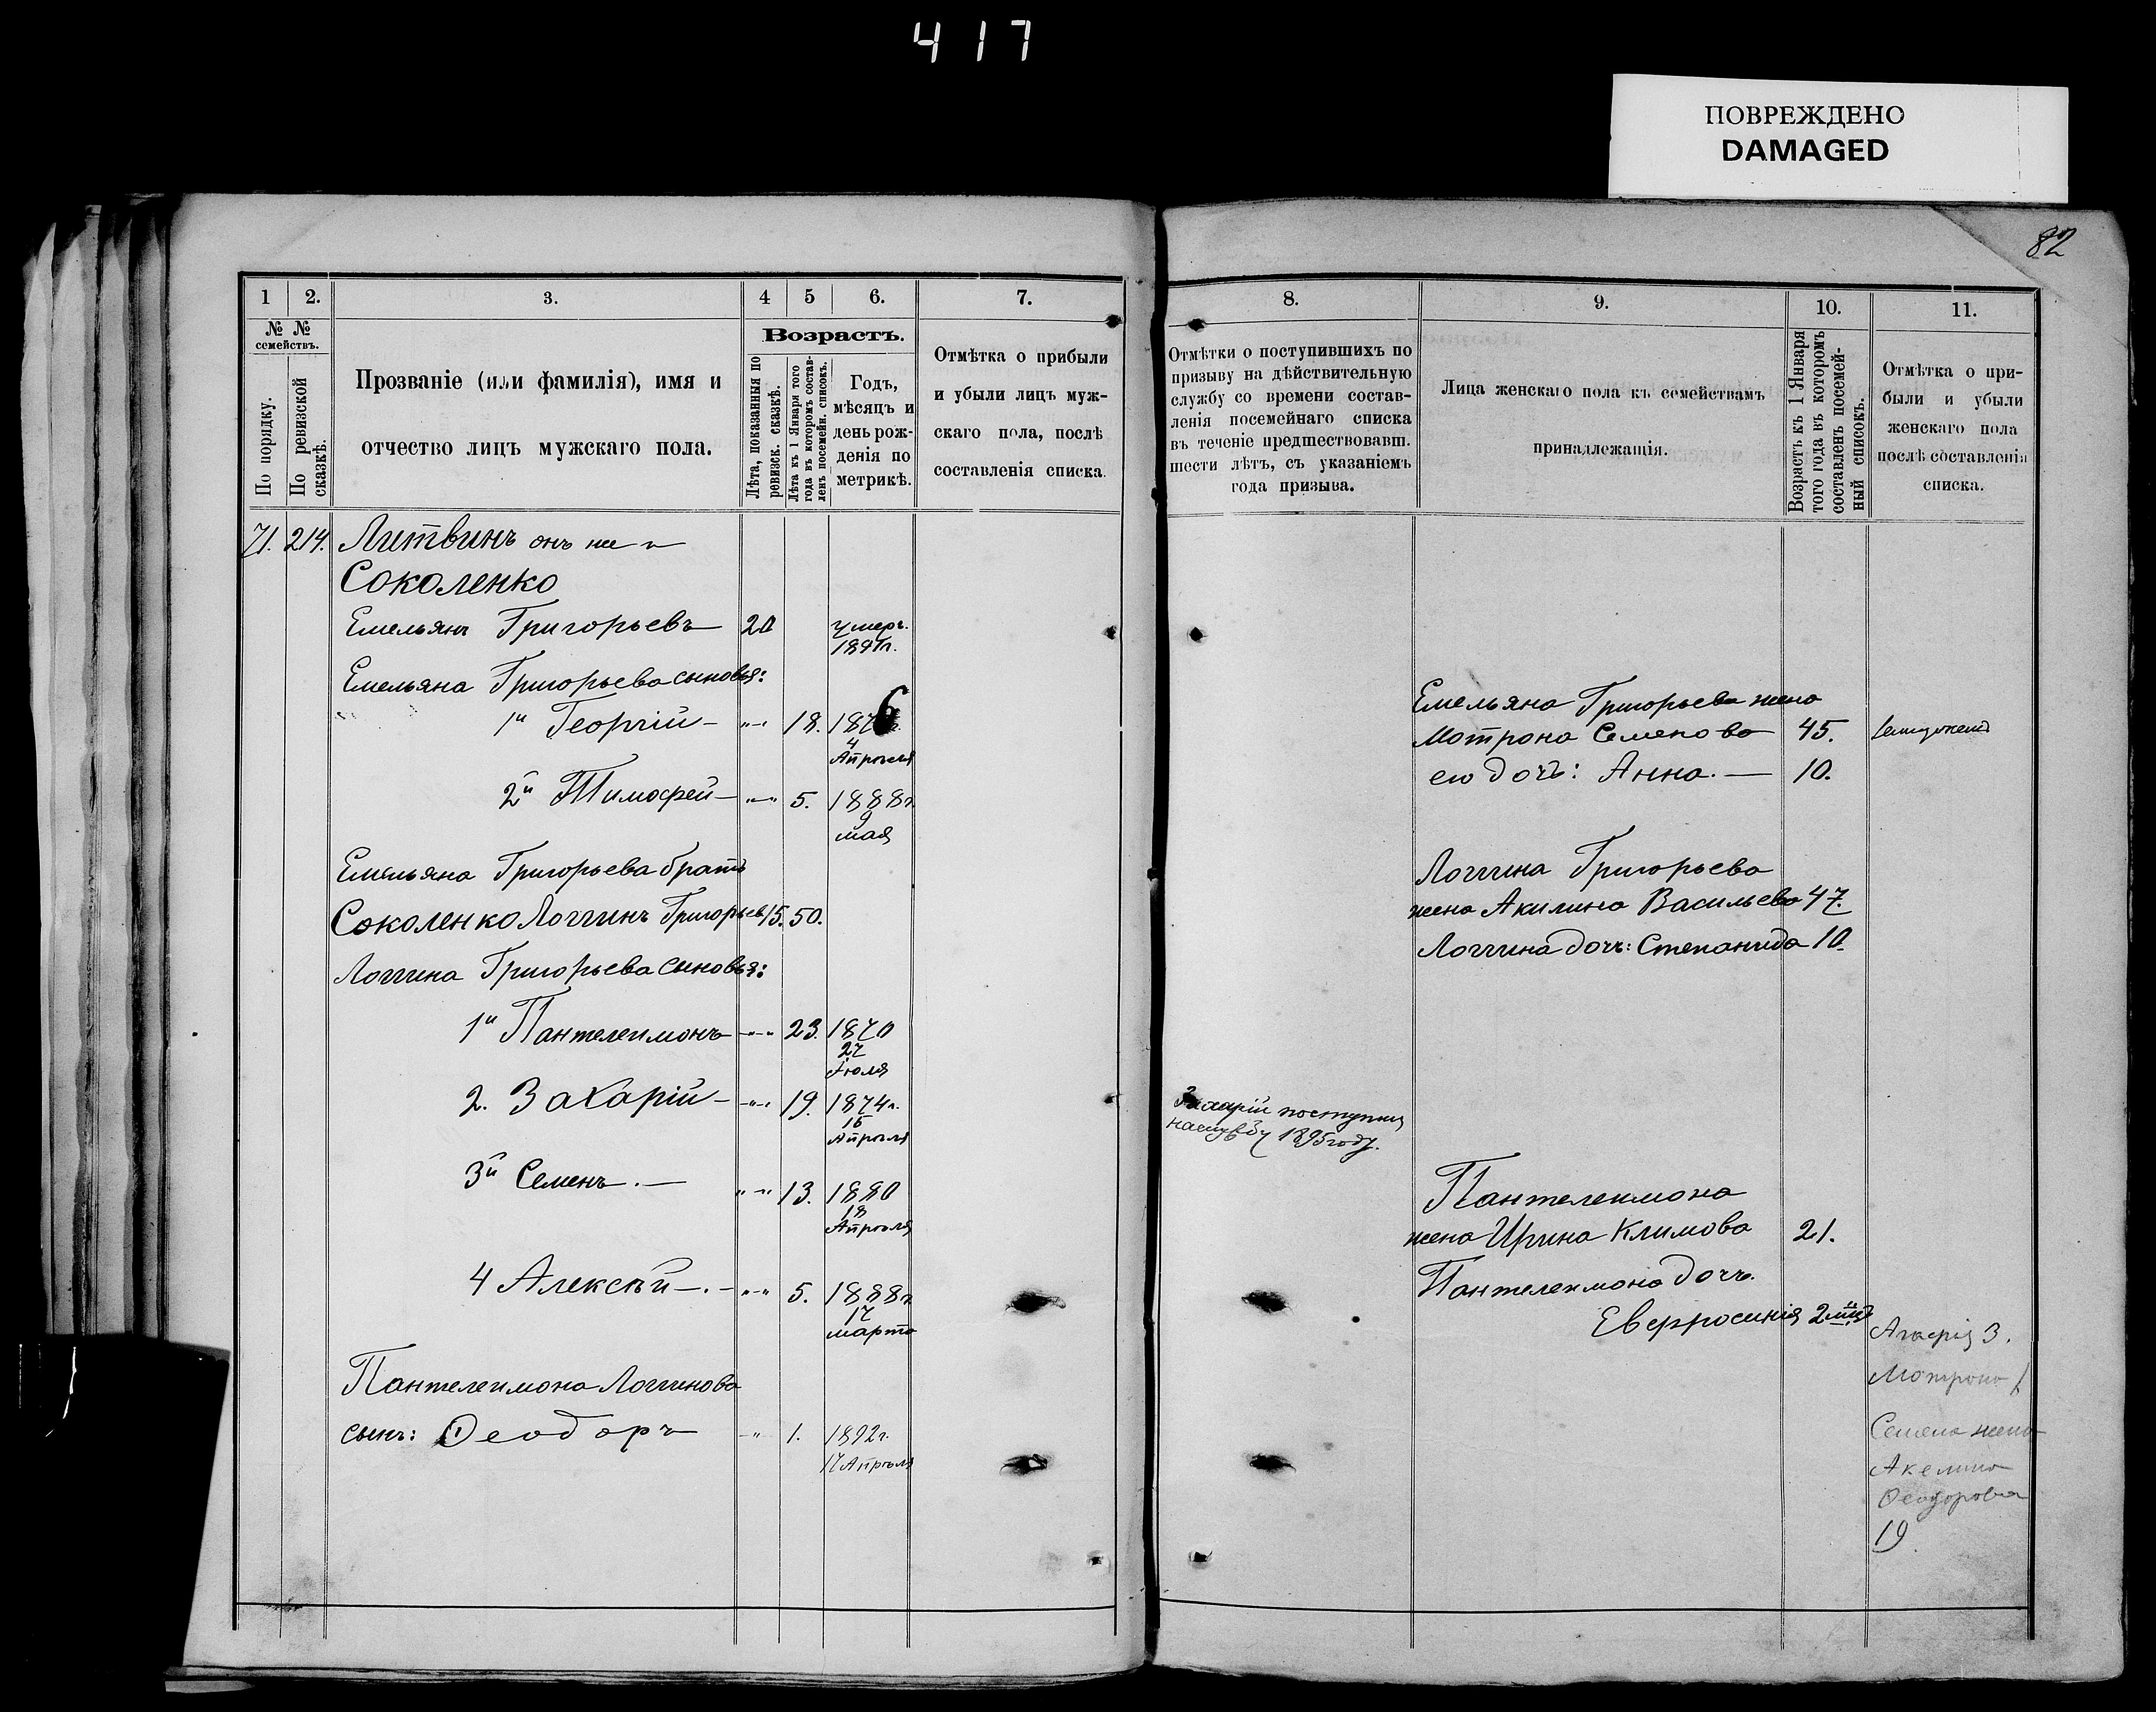 417
ПОВРЕЖДЕНО
DAMAGED
82
1
2.
3.
4
5
6.
7.
№ №
семействъ.
По порядку.
По ревизской
сказкѣ.
Прозваніе (или фамилія), имя и
отчество лицъ мужскаго пола.
Возрастъ.
Лѣта, показанныя по
ревизск. сказкѣ.
Лѣта къ 1 Января того
года въ которомъ состав-
ленъ посемейн. списокъ.
Годъ,
мѣсяцъ и
день рож-
денія по
метрикѣ.
Отмѣтка о прибыли
и убыли лицъ муж-
скаго пола, послѣ
составленія списка.
71. 214. Литвинъ онъ же и
Соколенко
Емельянъ Григорьевъ 20 умеръ
Емельяна Григорьева сыновья:
1й Георгій — 18. 1876
4
Апрѣля
2й Тимофей — 5. 1888г.
9
мая
Емельяна Григорьева братъ
Соколенко Логгинъ Григорьев 15. 50.
Логгина Григорьева сыновья:
1й Пантелеимонъ 23. 1870
27
Іюля
2. Захарій — 19. 1874г.
15
Апрѣля
3й Семенъ. — 13. 1880
18
Апрѣля
4 Алексѣй —. — 5. 1888г.
17
марта
Пантелеимона Логгинова
сынъ: Ѳеодоръ 1. 1892г.
17 Апрѣля
8.
9.
10.
11.
Отмѣтки о поступившихъ по
призыву на дѣйствительную
службу со времени состав-
ленія посемейнаго списка
въ теченіе предшествовавш.
шести лѣтъ, съ указаніемъ
года призыва.
Лица женскаго пола къ семействамъ
принадлежащія.
Возрастъ къ 1 Января
того года въ которомъ
составленъ посемей-
ный списокъ.
Отмѣтка о при-
были и убыли
женскаго пола
послѣ составленія
списка.
Емельяна Григорьева жена
Мотрона Семенова 45.
его дочь: Анна. — 10.
Логгина Григорьева
жена Акилина Васильева 47.
Логгина дочь: Степанида 10.
Захарій поступил
на службу 1895 году.
Пантелеимона
жена Ирина Климова 21.
Пантелеимона дочь
Евфросинія 2 мѣс.
Агафія 3.
Мотрона 1
Семена жена
Акелина
Ѳеодорова
19